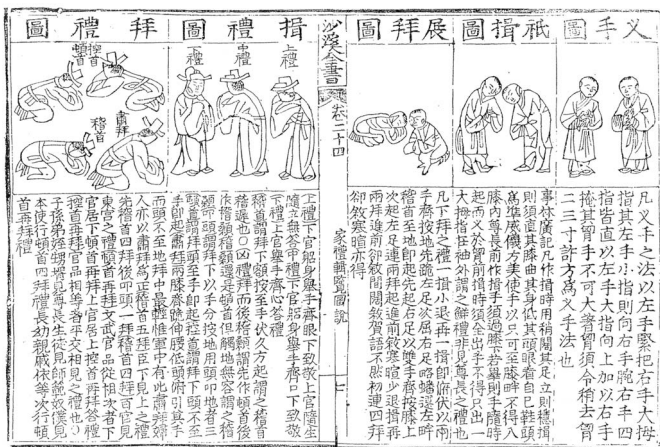 乂手圖
凡叉手之法以左手緊把右手大拇
指其左手小指則向右手腕右手四
指皆直以左手大指向上如以右手
掩其胷手不可大著胷須令稍去胷
二三寸許方爲叉手法也
祗揖圖
事林廣記凡作揖時用稍闊其足立則穩揖
則須直其膝曲其身低其頭眼看自己鞋頭
爲準威儀方美使手以只可至膝畔不得入
膝內尊長前作揖手須過膝下若畢則手隨時
起而叉於胷前揖時須全出手不得只出一
大拇指在袖外謂之鮮禮非見尊長之禮也
展拜圖
凡下拜之禮一揖小退再一揖即俯伏以兩
手齊按地先跪左足次屈右足略蟠過左畔
稽首至地即起先起右足以雙手齊按膝上
次起左足連兩拜起進前敘寒暄少退揖再
兩拜進前卻敘間闊敘賀語不恁初連四拜
卻敘寒暄亦得
沙溪全書
卷二十四
家禮輯覽圖說
七
揖禮圖
上禮
中禮
下禮
上禮下官躬身舉手齊眼下致敬上官隨坐
隨立無答中禮下官躬身舉手齊口下致敬
下禮上官舉手齊心答禮
稽首謂拜下額按至手伏久方起謂之稽首
稽遲也○凶禮拜而後稽顙謂先作頓首後
作稽顙稽顙還是頓首但觸地無容謂之稽
顙叩頭謂拜下以手分按地用頭叩地者三
頓首謂拜下頭至手即起控首謂拜下頭不至
手即起肅拜兩膝齊跪伸腰低頭俯引其手
拜禮圖
控首
頓首
肅拜
稽首
而頭不至地拜中最輕惟軍中有此肅拜婦
人亦以肅拜爲正稽首五拜臣下見上之禮
先稽首四拜後叩頭一拜稽首四拜百官見
東宮之禮頓首再拜文武官品從相次者下
官居下頓首再拜上官居上控首再拜答禮
控首再拜官品相等者平交相見之禮也○
子孫弟姪甥壻見尊長生徒見師範奴僕見
本使行頓首四拜禮長幼親戚依等次行頓
首再拜禮